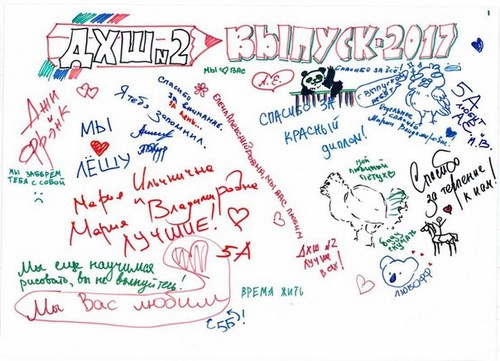 ДХШ №2
ВЫПУСК-2017
МЫ ВАС
СПАСИБО ЗА ВСЁ!
Л.Е.
ДАНИ
ФРЭНК
СПАСИБО
ЗА ВНИМАНИЕ.
Я тебя
Запомнил.
МЫ
ЛЁШУ
СПАСИБО ЗА
КРАСНЫЙ
диплом!
ВЫПУСК
Отдельное
спасибо
Марии Владимировне!
5А
ЛЮБИТ
МЫ ЗАБЕРЁМ
ТЕБЯ С СОБОЙ
ЕЛЕНА АЛЕКСАНДРОВНА, МЫ ВАС ЛЮБИМ
Мария Ильинична
и
Мария Владимировна
ЛУЧШИЕ!
5А
Мой
любимый
петух
Спасибо
за терпение
к нам!
ДХШ №2
ЛУЧШЕ
всех!
БУДУ
СКУЧАТЬ
ЛЮБОФФ
Мы ещё научимся
рисовать, вы не волнуйтесь!
Мы Вас любим
5Б!
ВРЕМЯ ЖИТЬ